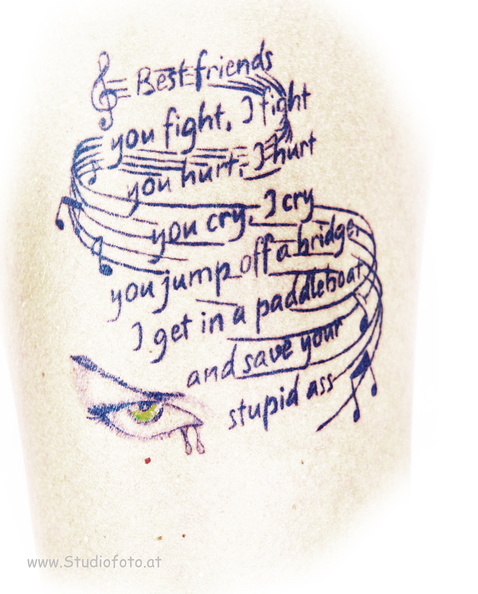 Best friends
you fight, I fight
you hurt, I hurt
you cry, I cry
you jump off a bridge,
I get in a paddleboat
and save your
stupid ass
www.Studiofoto.at